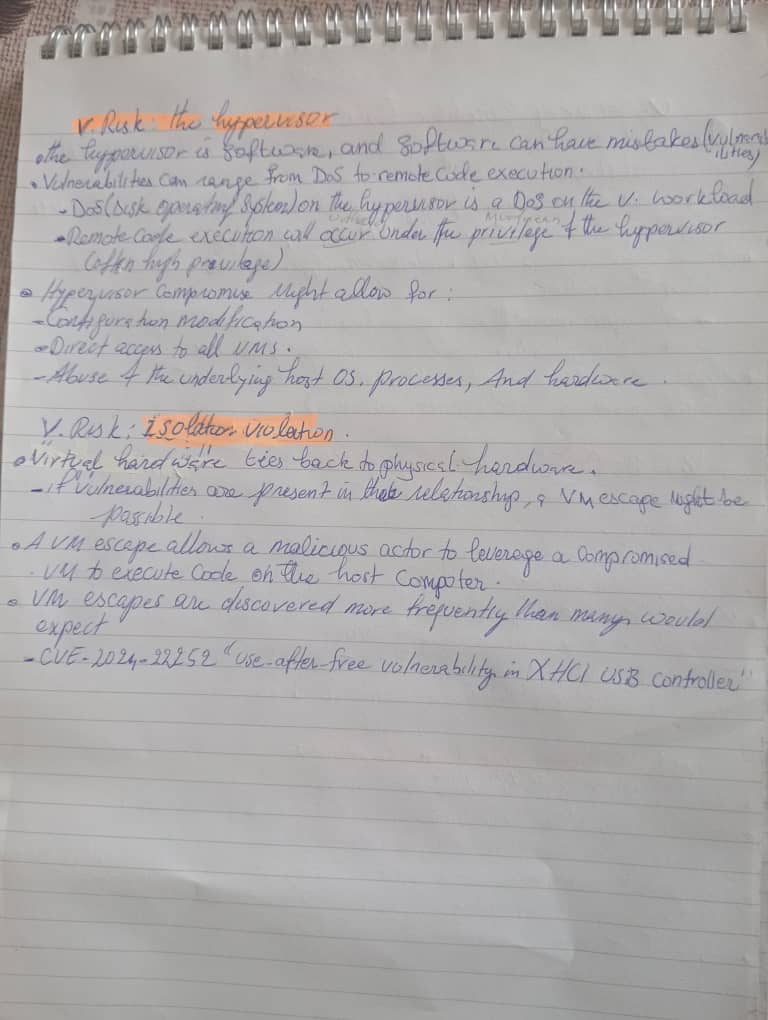 V. Risk: the hypervisor
• the hyporvisor is software, and software can have mistakes (vulnerabilities)
• Vulnerabilities can range from DoS to remote code execution.
- DoS (Disk operating System) on the hypervisor is a DoS on the v. workload
- Remote code execution will occur under the privilege of the hyppervisor
(often high previlage)
• Hypervisor compromise might allow for:
- Configuration modification
- Direct access to all VMS.
- Abuse of the underlying host OS, processes, And hardware.
V. Risk: Isolation violation.
• "Virtual hardware" ties back to physical hardware.
- if vulnerabilities are present in that relationship, a VM escape might be
possible.
• A VM escape allows a malicious actor to leverage a compromised
VM to execute code on the host computer.
• VM escapes are discovered more frequently than many would
expect
- CVE-2024-22252 "use-after-free vulnerability in XHCI USB controller"